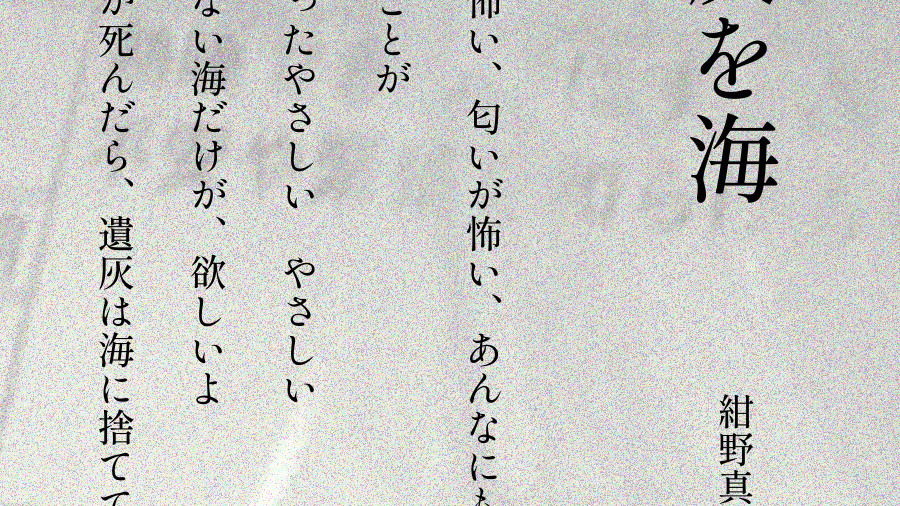 を海
紺野真
怖い、匂いが怖い、あんなにも
ことが
ったやさしい　やさしい
ない海だけが、欲しいよ
が死んだら、遺灰は海に捨てて